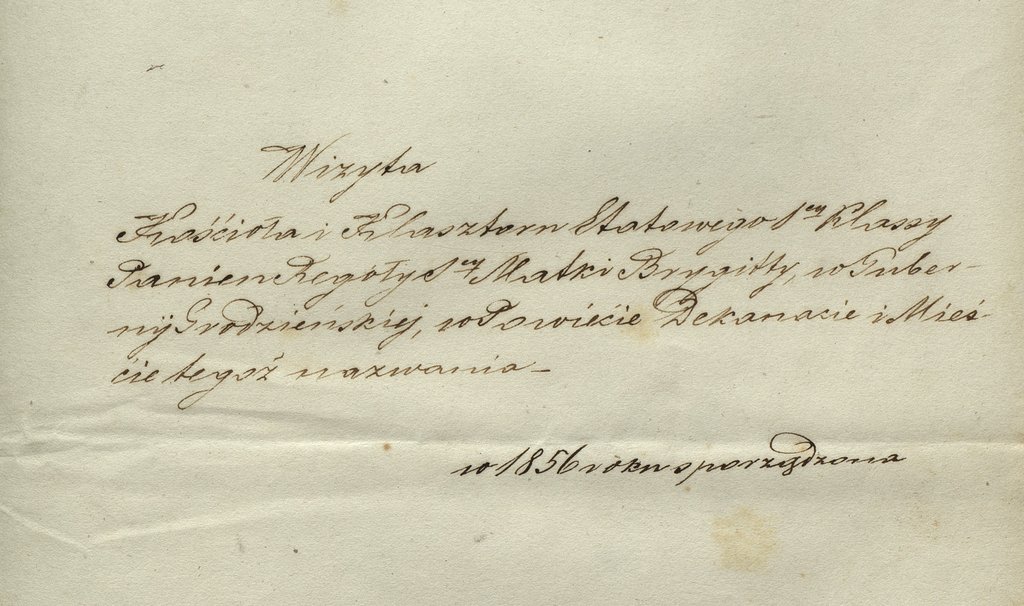 Wizyta
Kościoła i Klasztoru Etatowego 1ey Klassy
Panien Reguły Sej Matki Brygitty, w Guber-
nij Grodzieńskiej, w Powiecie Dekanacie i Mieś-
cie tegoż nazwania –
w 1856 roku sporządzona